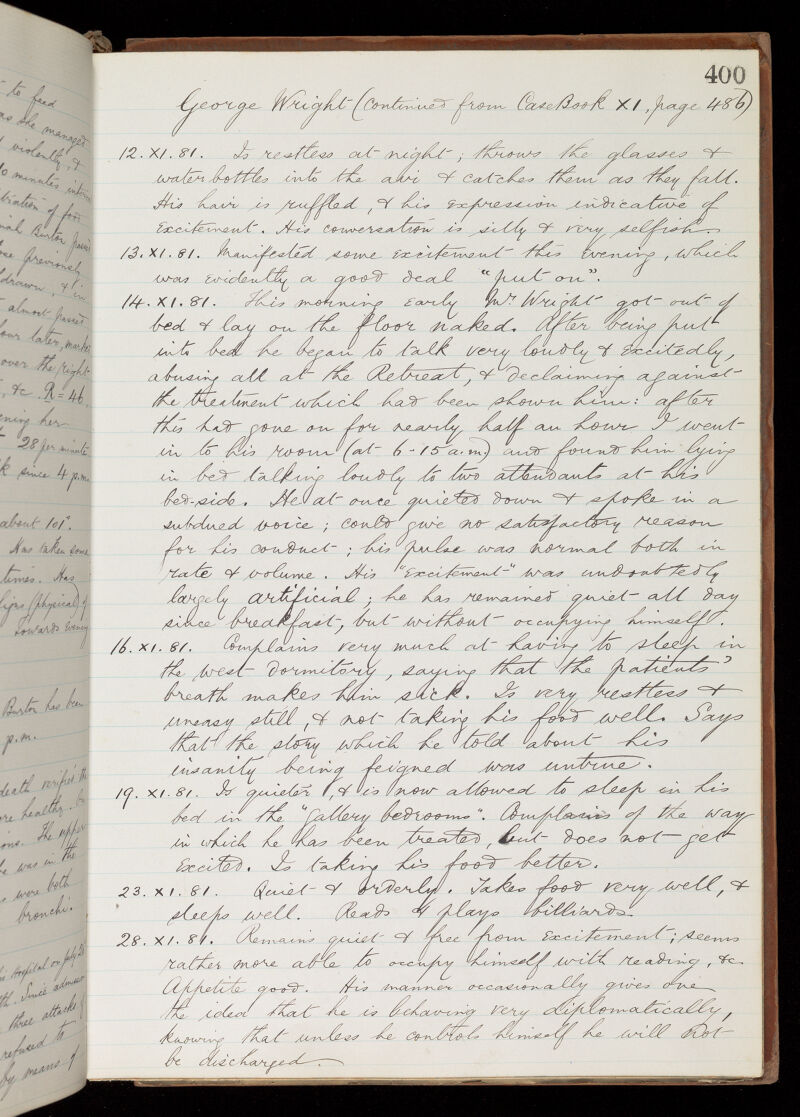 to feed
as she managed
violently, &
10 minutes
tration of food
Burton
previously
drawn, &
almost
hour later,
over the right
, &c. R = 46.
ening her
28 per minute
k since 4 p.m.
about 101°.
Has taken some
times. Has
lips (physical) of
Towards evening
Burton has been
p.m.
death verified the
re healthy.
ons. The upper
he was in the
s were both
bronchi.
Hospital on July 28
th. Since
three attacks
refused to
by means of
400
George Wright (continued from Case Book XI, page 486)
12. XI. 81. Is restless at night; throws the glasses &
water bottles into the air & catches them as they fall.
His hair is ruffled, & his expression indicative of
excitement. His conversation is silly & very selfish.
13. XI. 81. Manifested some excitement this evening, which
was evidently a good deal "put on".
14. XI. 81. This morning early Mr Wright got out of
bed & lay on the floor naked. After being put
into bed he began to talk very loudly & excitedly,
abusing all at the Retreat, & declaiming against
the treatment which had been shown him: after
this had gone on for nearly half an hour I went
in to his room (at 6-15 a.m.) and found him lying
in bed talking loudly to two attendants at his
bed-side. He at once quieted down & spoke in a
subdued voice; could give no satisfactory reason
for his conduct; his pulse was normal both in
rate & volume. His "excitement" was undoubtedly
largely artificial; he has remained quiet all day
since breakfast, but without occupying himself.
16. XI. 81. Complains very much at having to sleep in
the west dormitory, saying that the patients'
breath makes him sick. Is very restless &
uneasy still, & not taking his food well. Says
that the story which he told about his
insanity being feigned was untrue.
19. XI. 81. Is quieter, & is now allowed to sleep in his
bed in the "gallery bedrooms". Complains of the way
in which he has been treated, but does not get
excited. Is taking his food better.
23. XI. 81. Quiet & orderly. Takes food very well, &
sleeps well. Reads & plays billiards.
28. XI. 81. Remains quiet & free from excitement; seems
rather more able to occupy himself with reading, &c.
Appetite good. His manner occasionally gives one
the idea that he is behaving very diplomatically,
knowing that unless he controls himself he will not
be discharged.